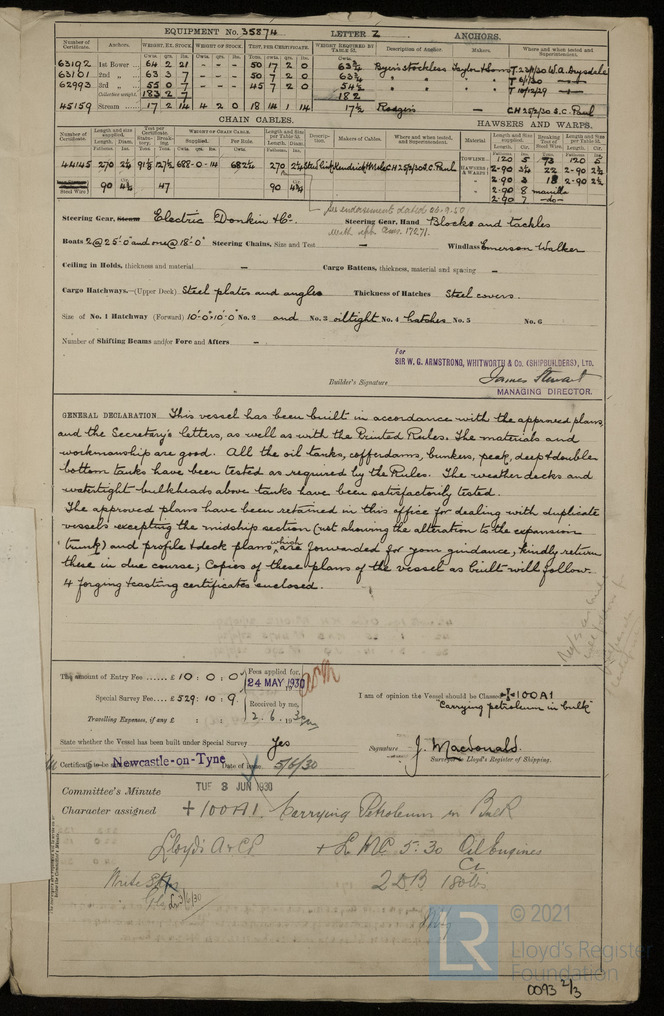 EQUIPMENT No. 35874 LETTER Z ANCHORS.
Number of Certificate. Anchors. WEIGHT, EX. STOCK. WEIGHT OF STOCK. TEST, PER CERTIFICATE. WEIGHT REQUIRED BY TABLE 31. Description of Anchor. Makers. Where and when tested and Superintendent.
63192 1st Bower 64 2 21 - - - 50 17 2 0 63¾
63101 2nd „ 63 3 7 - - - 50 7 2 0 63¾
62993 3rd „ 55 0 7 - - - 45 7 2 0 54½
Collective weight 183 2 7 182
45159 Stream 17 2 14 4 2 0 18 14 1 14 17½ Rodgers — S.C. Paul
CHAIN CABLES. HAWSERS AND WARPS.
Number of Certificate. Length and size supplied. Test per Certificate. WEIGHT OF CHAIN CABLE. Length and size per Table 31. Description. Makers of Cables. Where and when tested, and Superintendent. Material. Length and size supplied. Breaking Test of Steel Wire. Length and size per Table 31.
44145 270 2¼ 688-0-14 682¼ 270 2¼ S.C. Paul TOWLINE 120 5 73 120 5
HAWSERS & WARPS 2-90 3¼ 22 2-90 2½
2-90 3 18 2-90 2½
90 4½ 47 90 4¾ 2-90 8 manilla
2-90 7 —do—
See endorsement dated
Steering Gear, Steam Electric Donkin & Co. Steering Gear, Hand Blocks and tackles
Boats 2@25'-0" and one@18'-0" Steering Chains, Size and Test — Windlass Emerson Walker
Ceiling in Holds, thickness and material — Cargo Battens, thickness, material and spacing —
Cargo Hatchways.—(Upper Deck) Steel plates and angles Thickness of Hatches Steel covers.
Size of No. 1 Hatchway (Forward) 10'-0"×10'-0" No. 2 and No. 3 oiltight No. 4 hatches No. 5 No. 6
Number of Shifting Beams and/or Fore and Afters —
For
SIR W. G. ARMSTRONG, WHITWORTH & Co. (SHIPBUILDERS), LTD.
Builder's Signature James Stewart
MANAGING DIRECTOR.
GENERAL DECLARATION This vessel has been built in accordance with the approved plans,
and the Secretary's letters, as well as with the Printed Rules. The materials and
workmanship are good. All the oil tanks, cofferdams, bunkers, peak, deep & double
bottom tanks have been tested as required by the Rules. The weather decks and
watertight bulkheads above tanks have been satisfactorily tested.
The approved plans have been retained in this office for dealing with duplicate
vessels excepting the midship section (not showing the alteration to the expansion
trunk) and profile & deck plans which are forwarded for your guidance, kindly return
these in due course; Copies of these plans of the vessel as built will follow.
4 forging & casting certificates enclosed.
The amount of Entry Fee ...... £ 10 : 0 : 0 Fees applied for,
24 MAY 1930
Special Survey Fee ... £ 529 : 10 : 9 Received by me,
Travelling Expenses, if any £ : : 2.6.1930
I am of opinion the Vessel should be Classed ✠100A1
"Carrying petroleum in bulk"
State whether the Vessel has been built under Special Survey Yes Signature J. Macdonald.
Surveyor to Lloyd's Register of Shipping.
Newcastle-on-Tyne Date of issue 5/6/30
Committee's Minute TUE 3 JUN 1930
Character assigned +100A1. Carrying Petroleum in Bulk
Lloyd's A & CP. + LMC 5.30 Oil Engines
2 DB 180 lbs
© 2021
LR Lloyd's Register
Foundation
0093 2/3